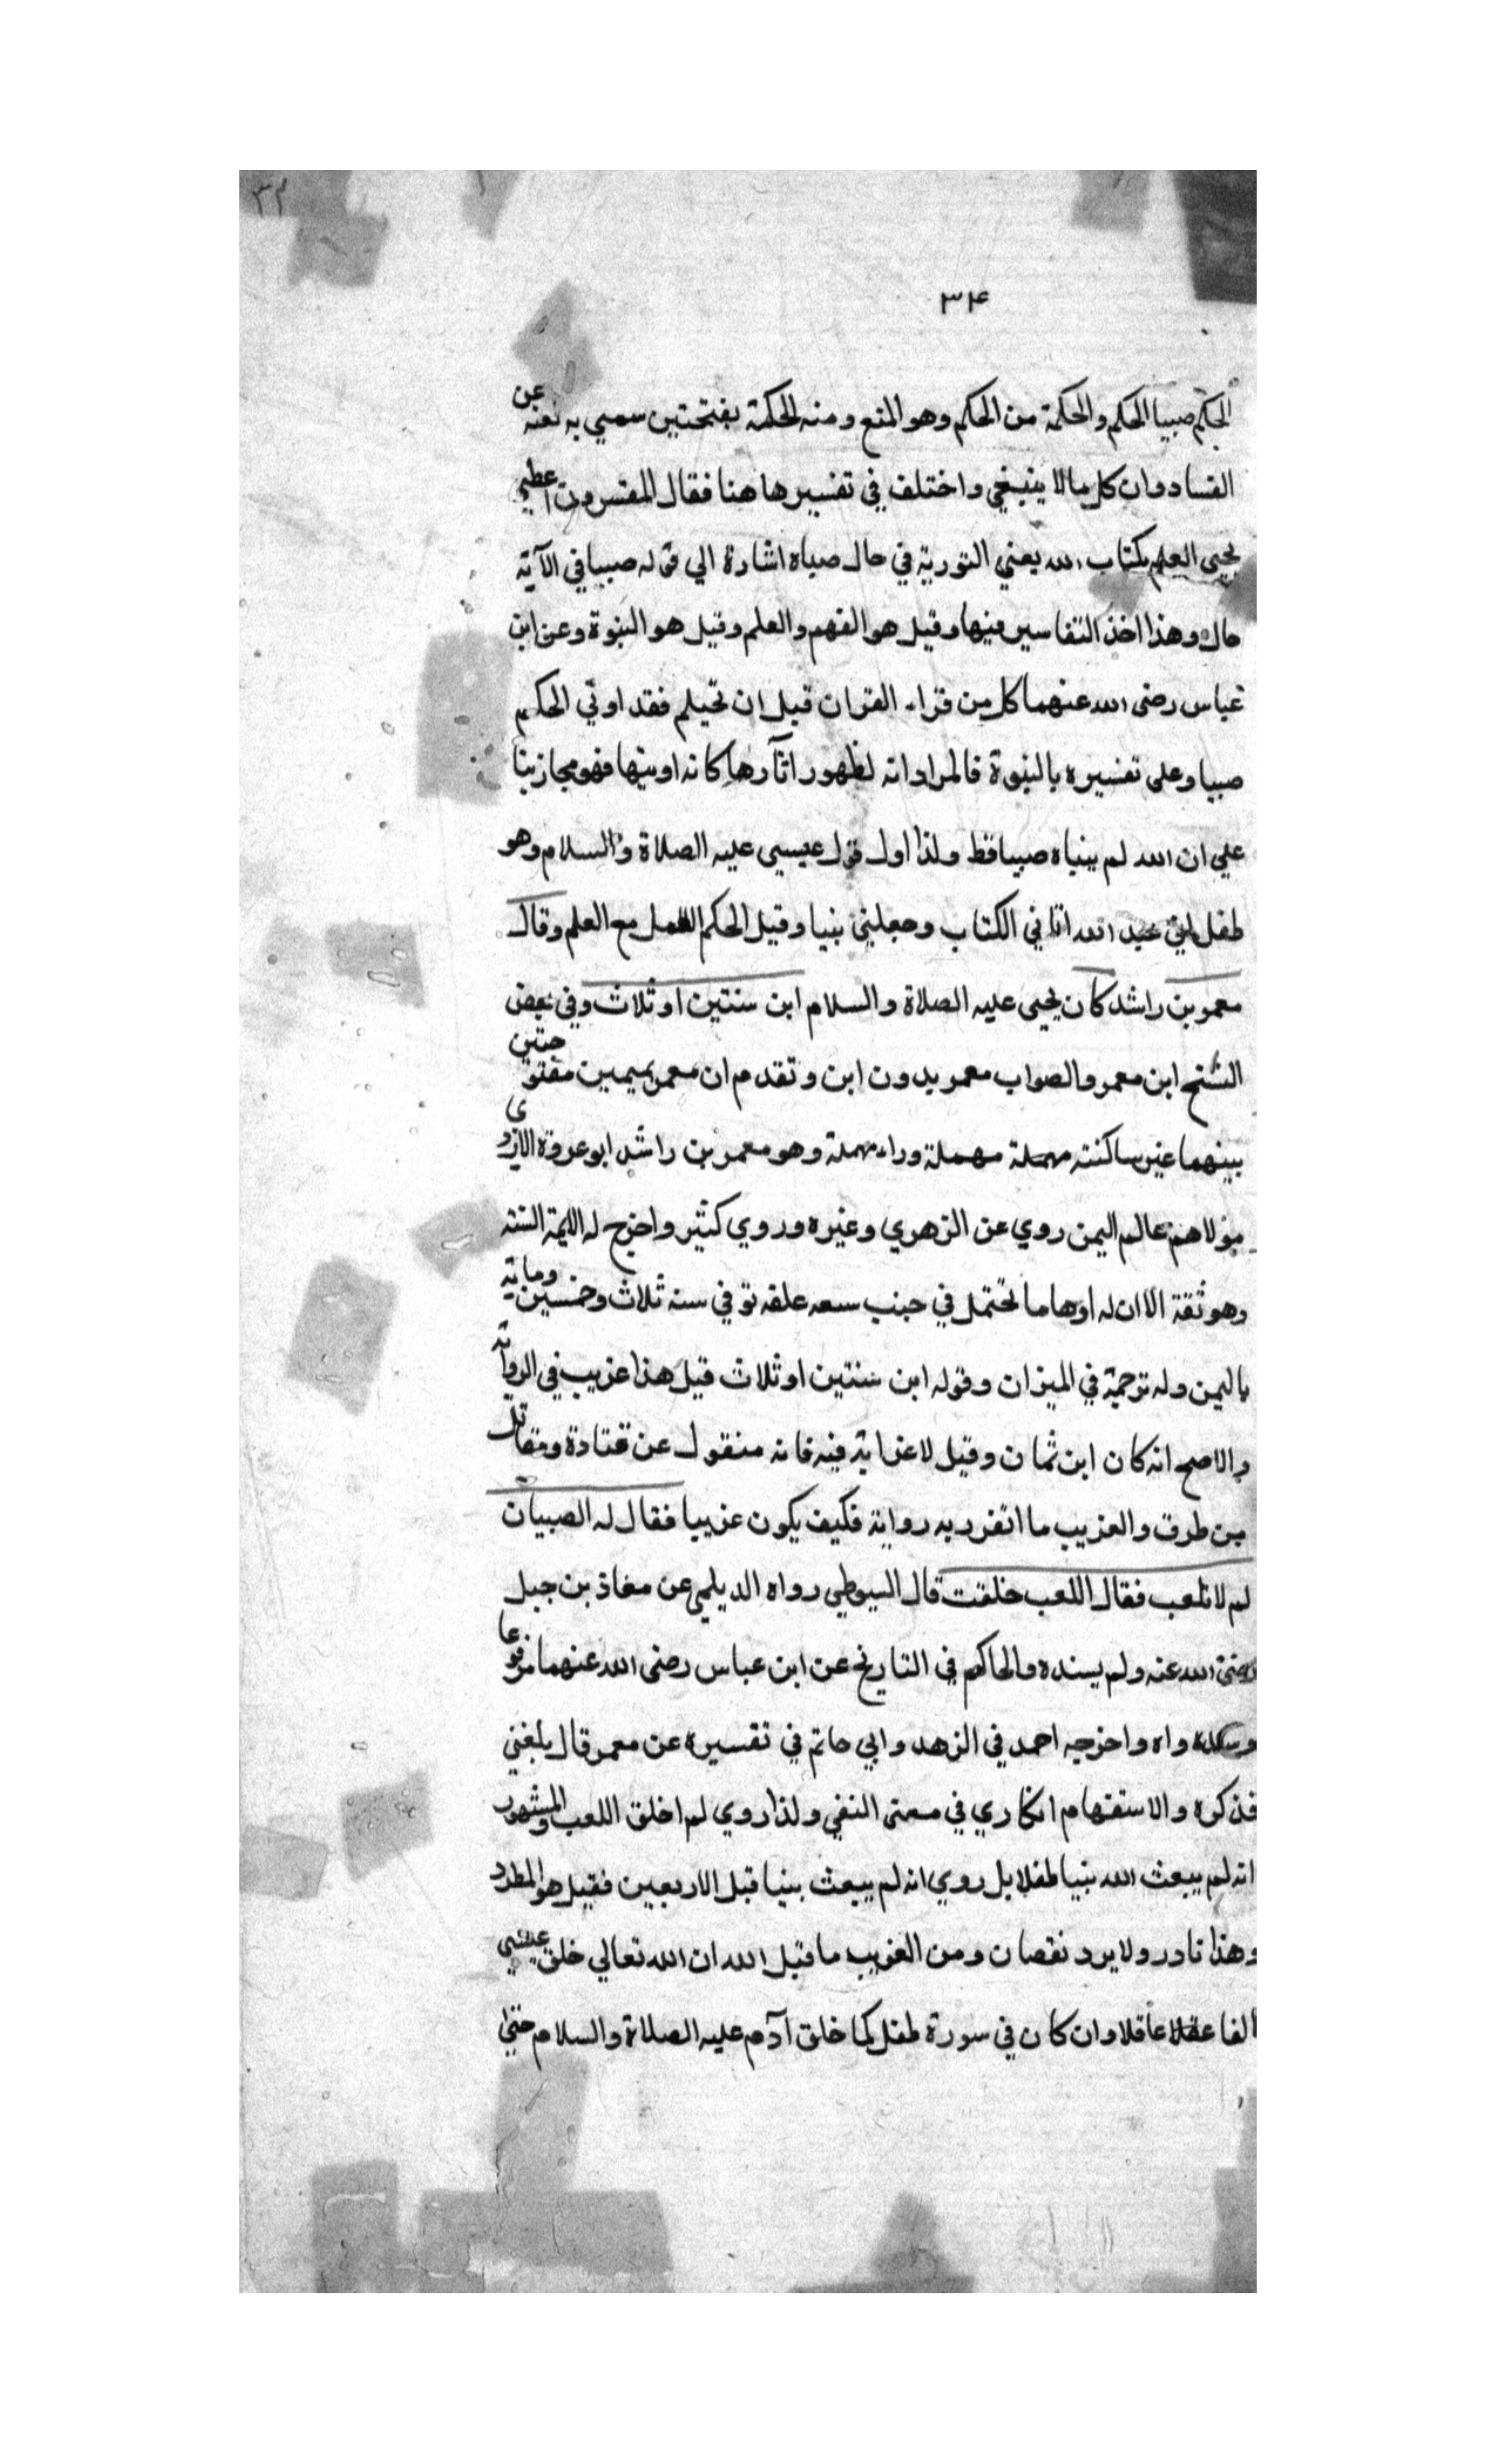 ٣٢
٣۴
الحكم صبيا الحكم والحكمة من الحكم وهو المنع ومنه الحكمة بفتحتين سمي به نعنه عن
الفساد وان كل ما لا ينبغي واختلف في تفسيرها هنا فقال المفسرون اعطي
يحيى العلم بكتاب الله يعني التورية في حال صباه اشارة الي قوله صبيا في الآية
حال وهذا اخذ التفاسير فيها وقيل هو الفهم والعلم وقيل هو النبوة وعن ابن
عباس رضى الله عنهما كل من قراء القران قبل ان تحيلم فقد اوتي الحكم
صبيا وعلى تفسيره بالنبوة فالمراد انه لظهور اثآرها كانه اوتيها فهو مجاز بنا
علي ان الله لم ينباه صبيا قط ولذا اول قول عيسي عليه الصلاة والسلام وهو
طفل اني عبد الله اتاني الكتاب وجعلني نبيا وقيل الحكم العمل مع العلم وقال
معمر بن راشد كان يحيى عليه الصلاة والسلام ابن سنتين او ثلاث وفي بعض
النسخ ابن معمر والصواب معمر بدون ابن وتقدم ان معمر بميمين مفتوحتين
بينهما عين ساكنته مهملة مهملة وراء مهملة وهو معمر بن راشد ابو عروة الازدي
مولاهم عالم اليمن روي عن الزهري وغيره وروي كثير واخرج له الايمة الستة
وهو ثقة الا ان له اوهاما تحتمل في جنب سعه علقه توفي سنه ثلاث وخمسين وماية
باليمن وله ترجمة في الميزان وقوله ابن سنتين او ثلاث قيل هذا غريب في الرواية
والاصح انه كان ابن ثمان وقيل لا غرابة فيه فانه منقول عن قتادة ومقاتل
من طرق والغريب ما انفرد به رواية فكيف يكون غريبا فقال له الصبيان
لم لا تلعب فقال اللعب خلقت قال السيوطي رواه الديلمي عن معاذ بن جبل
رضى الله عنه ولم يسنده والحاكم في التاريخ عن ابن عباس رضى الله عنهما مرفوعا
وسنده واه واخرجه احمد في الزهد وابي حاتم في تفسيره عن معمر قال بلغني
فذكره والاستفهام انكاري في معنى النفي ولذا روي لم اخلق اللعب والمشهور
انه لم يبعث الله نبيا طفلا بل روي انه لم يبعث نبيا قبل الاربعين فقيل هو المطرد
وهذا نادر ولا يرد نقصان ومن الغريب ما قيل الله ان الله تعالي خلق عيسي
الفا عقلا عاقلا وان كان في سورة طفل كما خلق آدم عليه الصلاة والسلام حتى